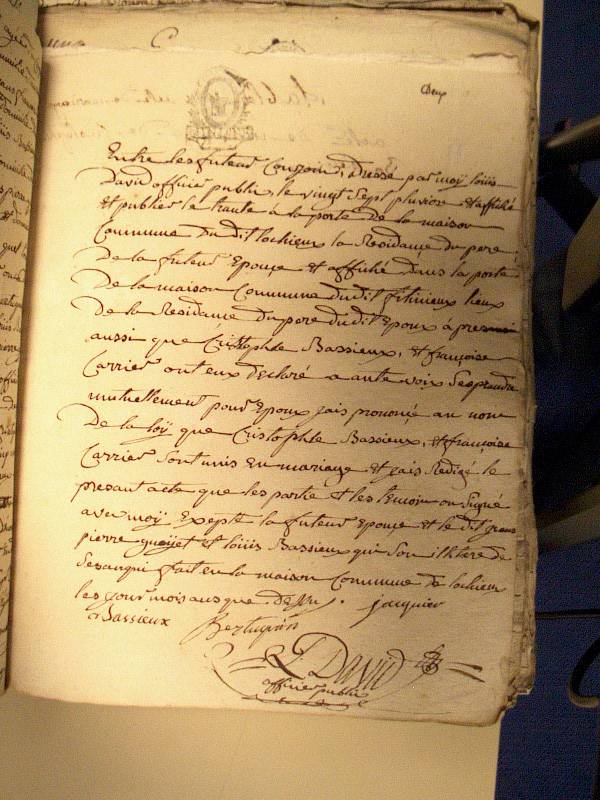 Deux
Entre les futeur Conjoin, Dressé par moÿ loüis
David officier public le vingt sept pluviose et affiché
et publier le trante à la porte de la maison
Commune Du dit lochieux la Residançe du pere
De la futeur Epouçe et affiché dans la porte
De la maison Commune dudit fitinieux lieux
De la Residançe Du pere dudit Epoux à pres
aussi que Cristophle Bassieux, et françoise
Carrier ont eux declaré a aute voix Se prendre
mutuellement pour Epoux jais prononcé au nom
De la loÿ que Cristophle Bassieux, et françoise
Carrier Sont unis En mariage et jais Redigé le
presant acte que les partie et les temoin on Signé
avec moÿ Exepté la futeur Epouçe et le dit
pierre et loüis Bassieux qui Son illitere de
Se fait en la maison Commune de lochieux
les jour mois ans que dessu. jacquier
Bassieux
L. David
officier public